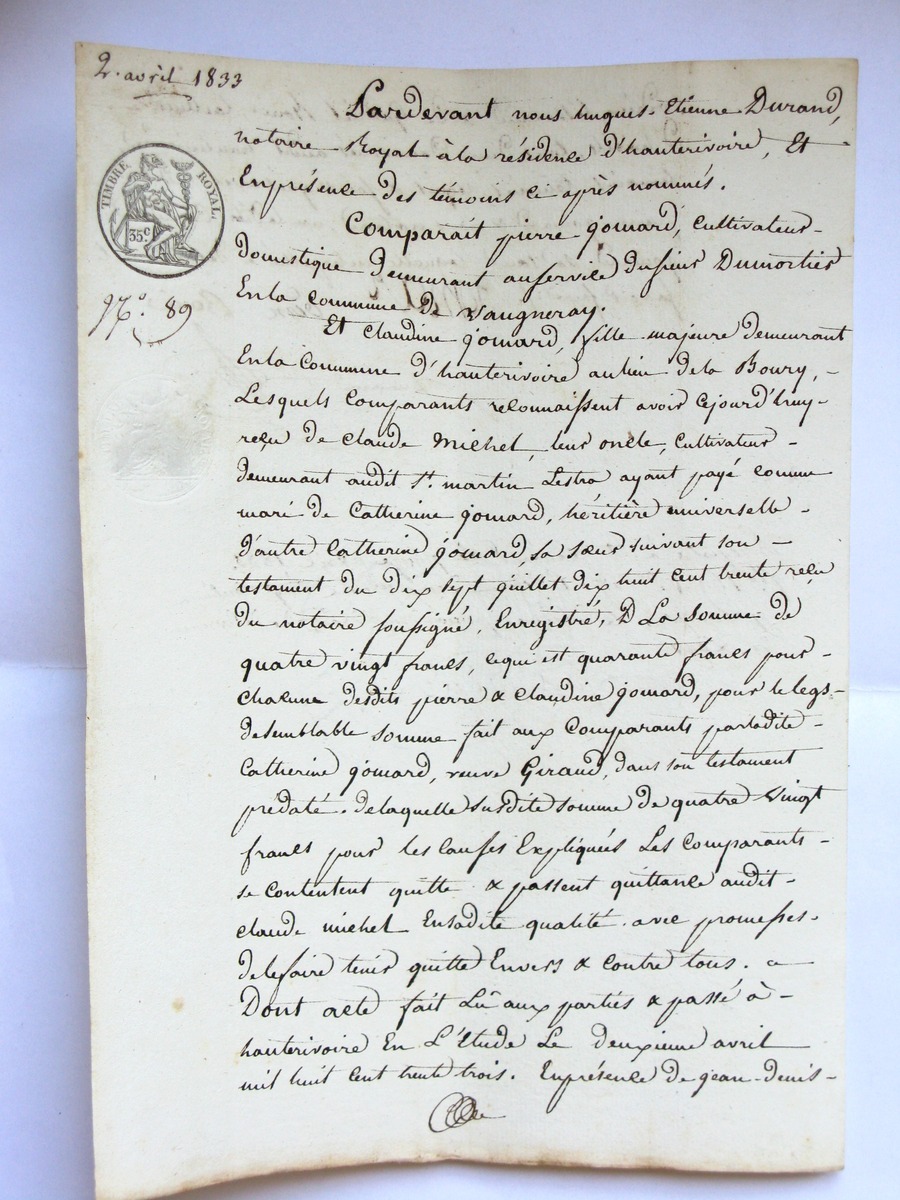 2. avril 1833
Pardevant nous hugues-Etienne Durand,
notaire Royal à la résidence d'hauterivoire, Et
En présence des témoins ci après nommés.
TIMBRE ROYAL.
35c
Comparait pierre jomard, Cultivateur-
domestique demeurant au service du sieur Dumortier
En la commune de Vaugneray.
N.o 89
Et Claudine jomard, fille majeure demeurant
En la Commune d'hauterivoire au lieu de la Boury, -
Lesquels Comparants reconnaissent avoir cejourd'huy-
reçu de Claude Michel, leur oncle, Cultivateur -
demeurant audit St. martin Lestra ayant payé comme
mari de Catherine jomard, héritière universelle -
d'autre Catherine jomard, sa sœur suivant son -
testament du dix sept juillet dix huit cent trente reçu
du notaire soussigné, Enregistré, D La somme de
quatre vingt francs, ce qui est quarante francs pour -
chacune desdits pierre & Claudine jomard, pour le legs-
de semblable somme fait aux Comparants par ladite -
Catherine jomard, veuve Giraud, dans son testament
prédaté. de laquelle susdite somme de quatre Vingt
francs pour les causes Expliquées Les Comparants -
se Contentent quitte & passent quittance audit -
Claude michel En sadite qualité. avec promesses.
de le faire tenir quitte Envers & contre tous.
Dont acte fait Lû aux parties & passé à -
hauterivoire En L'Etude Le deuxieme avril
mil huit cent trente trois. En présence de jean-denis-